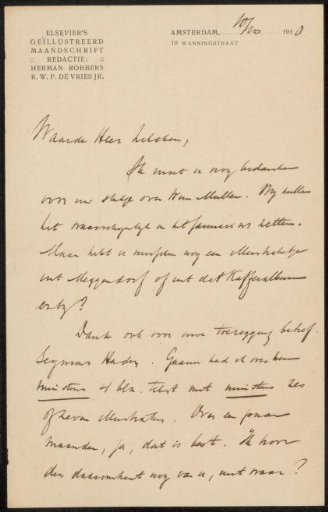 ELSEVIER'S
GEÏLLUSTREERD
MAANDSCHRIFT
REDACTIE:
HERMAN ROBBERS
R. W. P. DE VRIES JR.
AMSTERDAM, 10/10 1913
19 WANNINGSTRAAT
Waarde Heer
Ik moet u nog bedanken
voor uw stukje over Muller. Wij zullen
het waarschijnlijk in het januarinr zetten.
Maar hebt u misschien nog een
uit Meggendorf of uit dat
erbij?
Dank ook voor uwe toezegging betreff.
Seymour Haden. Gaarne had ik over hem
minstens 4 blz. tekst met minstens zes
of zeven illustraties. Over een paar
maanden, ja, dat is best. Ik hoor
dan daaromtrent nog van u, niet waar?